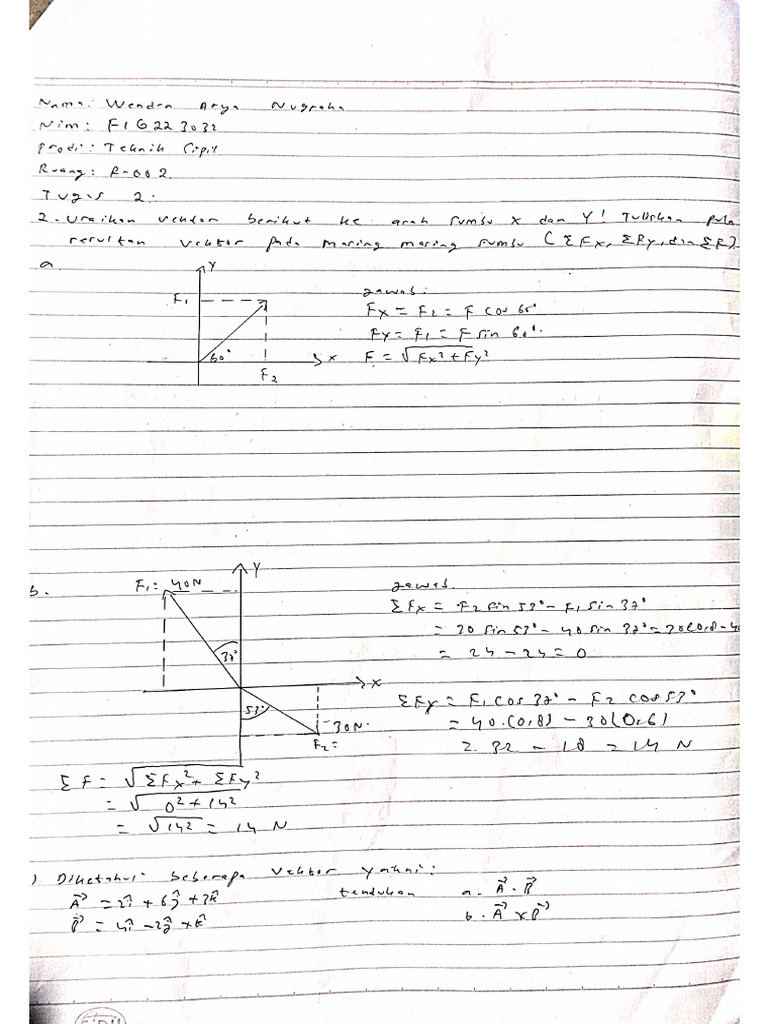 Nama: Wendra Arya Nugraha
Nim: F1G223032
Prodi: Teknik Sipil
Ruang: R-002
Tugas 2:
2. Uraikan vektor berikut ke arah sumbu X dan Y! Tuliskan pula
resultan vektor pada masing masing sumbu (ΣFx, ΣFy, dan ΣF)
a.
Y
F₁
60°
X
F₂
Jawab:
Fx = F₂ = F cos 60°
Fy = F₁ = F sin 60°
F = √Fx² + Fy²
b.
F₁ = 40N
Y
37°
X
53°
30N
F₂ =
Jawab.
ΣFx = F₂ sin 53° - F₁ sin 37°
= 30 sin 53° - 40 sin 37° = 30(0,8 - 40
= 24 - 24 = 0
ΣFy = F₁ cos 37° - F₂ cos 53°
= 40.(0,8) - 30(0,6)
= 32 - 18 = 14 N
ΣF = √ΣFx² + ΣFy²
= √0² + 14²
= √14² = 14 N
) Diketahui beberapa vektor yakni:
A = 2i + 6j + 3k
B = 4i - 2j + k
tentukan
a. A · B
b. A x B